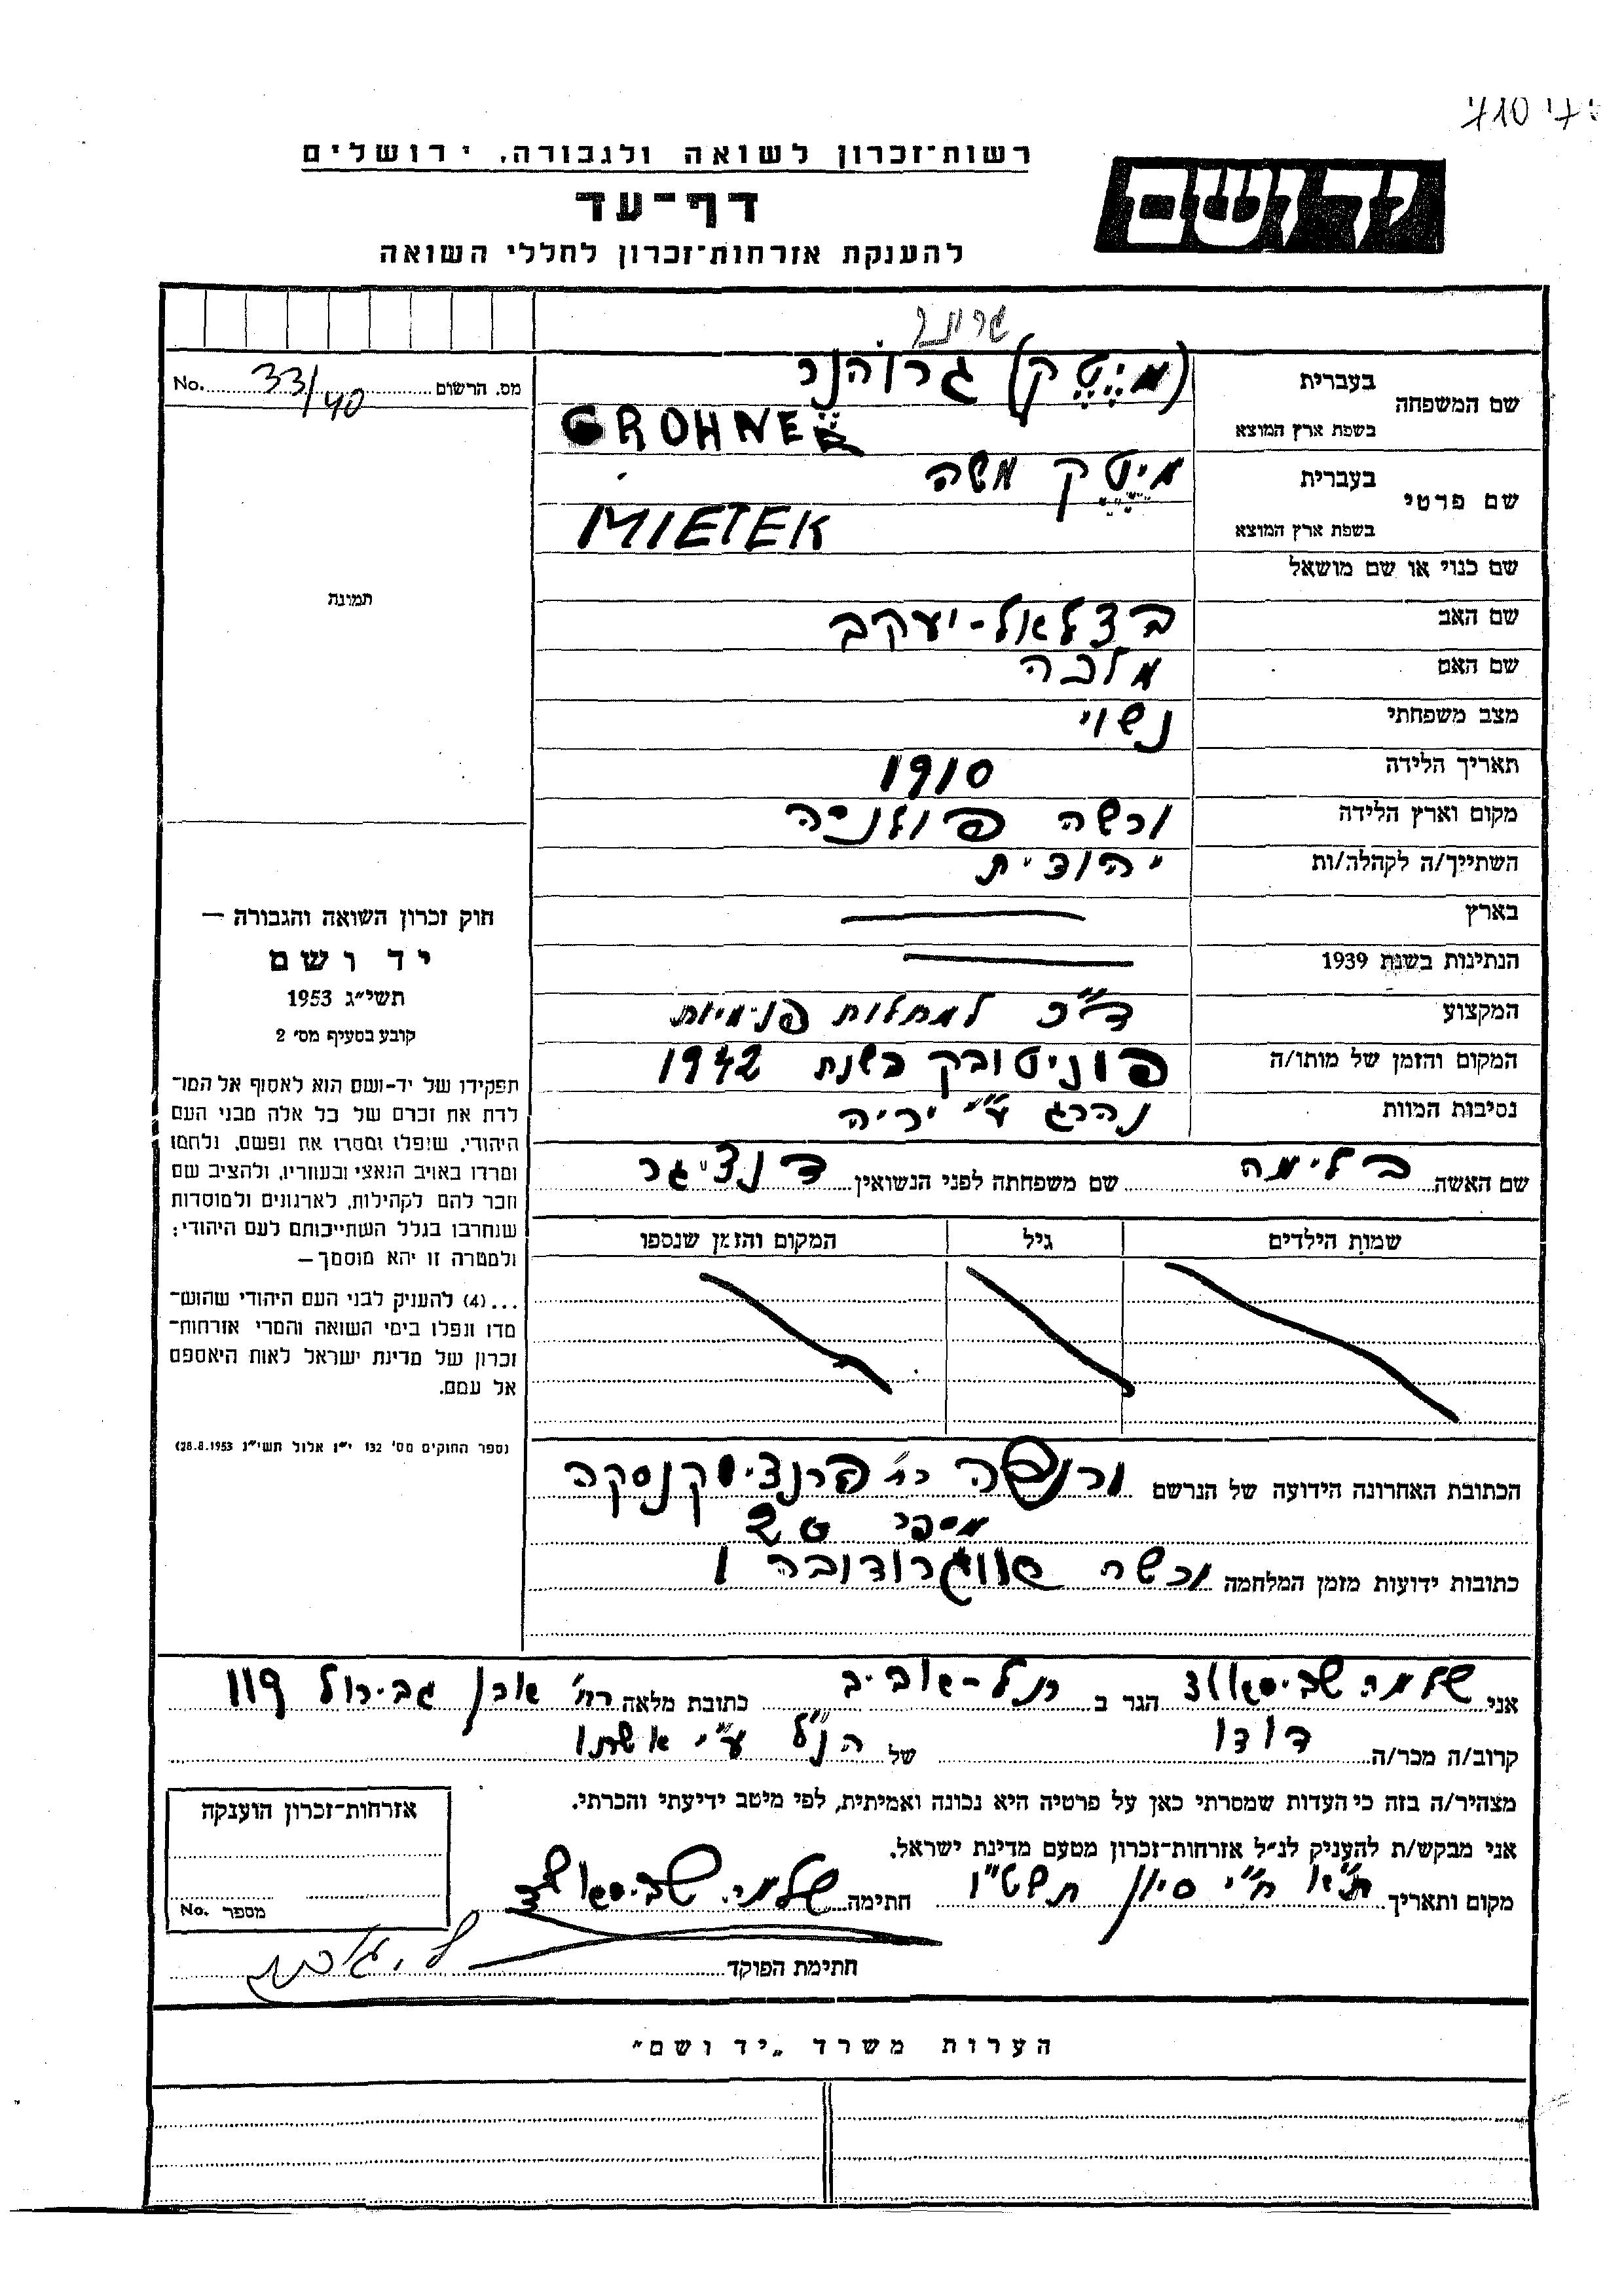 רשות־זכרון לשואה ולגבורה, ירושלים
דף־עד
להענקת אזרחות־זכרון לחללי השואה
יד ושם
מס. הרשום 33/40 No.
שם המשפחה בעברית (מיטק) גרוהנר
בשפת ארץ המוצא GROHNER
שם פרטי בעברית מיטק משה
בשפת ארץ המוצא MIETEK
שם כנוי או שם מושאל
שם האב בצלאל-יעקב
שם האם מלכה
מצב משפחתי נשוי
תאריך הלידה 1910
מקום וארץ הלידה ורשה פולניה
השתייך/ה לקהלה/ות יהודית
בארץ
הנתינות בשנת 1939
המקצוע ד"ר למחלות פנימיות
המקום והזמן של מותו/ה פוניטובק בשנת 1942
נסיבות המוות נהרג ע"י יריה
שם האשה בלימה שם משפחתה לפני הנשואין דנציגר
שמות הילדים גיל המקום והזמן שנספו
הכתובת האחרונה הידועה של הנרשם ורשה רח' פרנצישקנסקה
מספר
כתובות ידועות מזמן המלחמה ורשה 1
תמונה
חוק זכרון השואה והגבורה —
יד ושם
תשי"ג 1953
קובע בסעיף מס' 2
תפקידו של יד-ושם הוא לאסוף אל המו־
לדת את זכרם של כל אלה מבני העם
היהודי, שנפלו ומסרו את נפשם, נלחמו
ומרדו באויב הנאצי ובעוזריו, ולהציב שם
וזכר להם לקהילות, לארגונים ולמוסדות
שנחרבו בגלל השתייכותם לעם היהודי;
ולמטרה זו יהא מוסמך —
...(4) להעניק לבני העם היהודי שהוש־
מדו ונפלו בימי השואה והמרי אזרחות־
זכרון של מדינת ישראל לאות היאספם
אל עמם.
(ספר החוקים מס' 132 י"ז אלול תשי"ג 28.8.1953)
אני שלמה הגר ב תל-אביב כתובת מלאה רח' אבן גבירול 119
קרוב/ה מכר/ה דודו של הנ"ל ע"י אשתו
מצהיר/ה בזה כי העדות שמסרתי כאן על פרטיה היא נכונה ואמיתית, לפי מיטב ידיעתי והכרתי.
אני מבקש/ת להעניק לנ"ל אזרחות־זכרון מטעם מדינת ישראל.
מקום ותאריך ת"א ח"י סיון תשט"ו חתימה
חתימת הפוקד
אזרחות־זכרון הוענקה
מספר No.
הערות משרד „יד ושם"